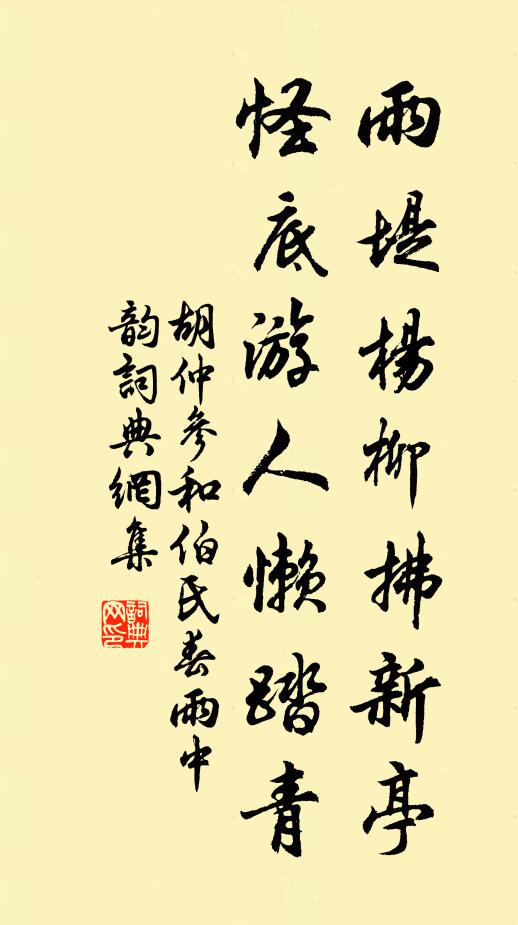 雨堤楊柳拂新亭
怪底游人懶踏青
胡仲參和伯氏春雨中
韵詞典網集
詞典網印